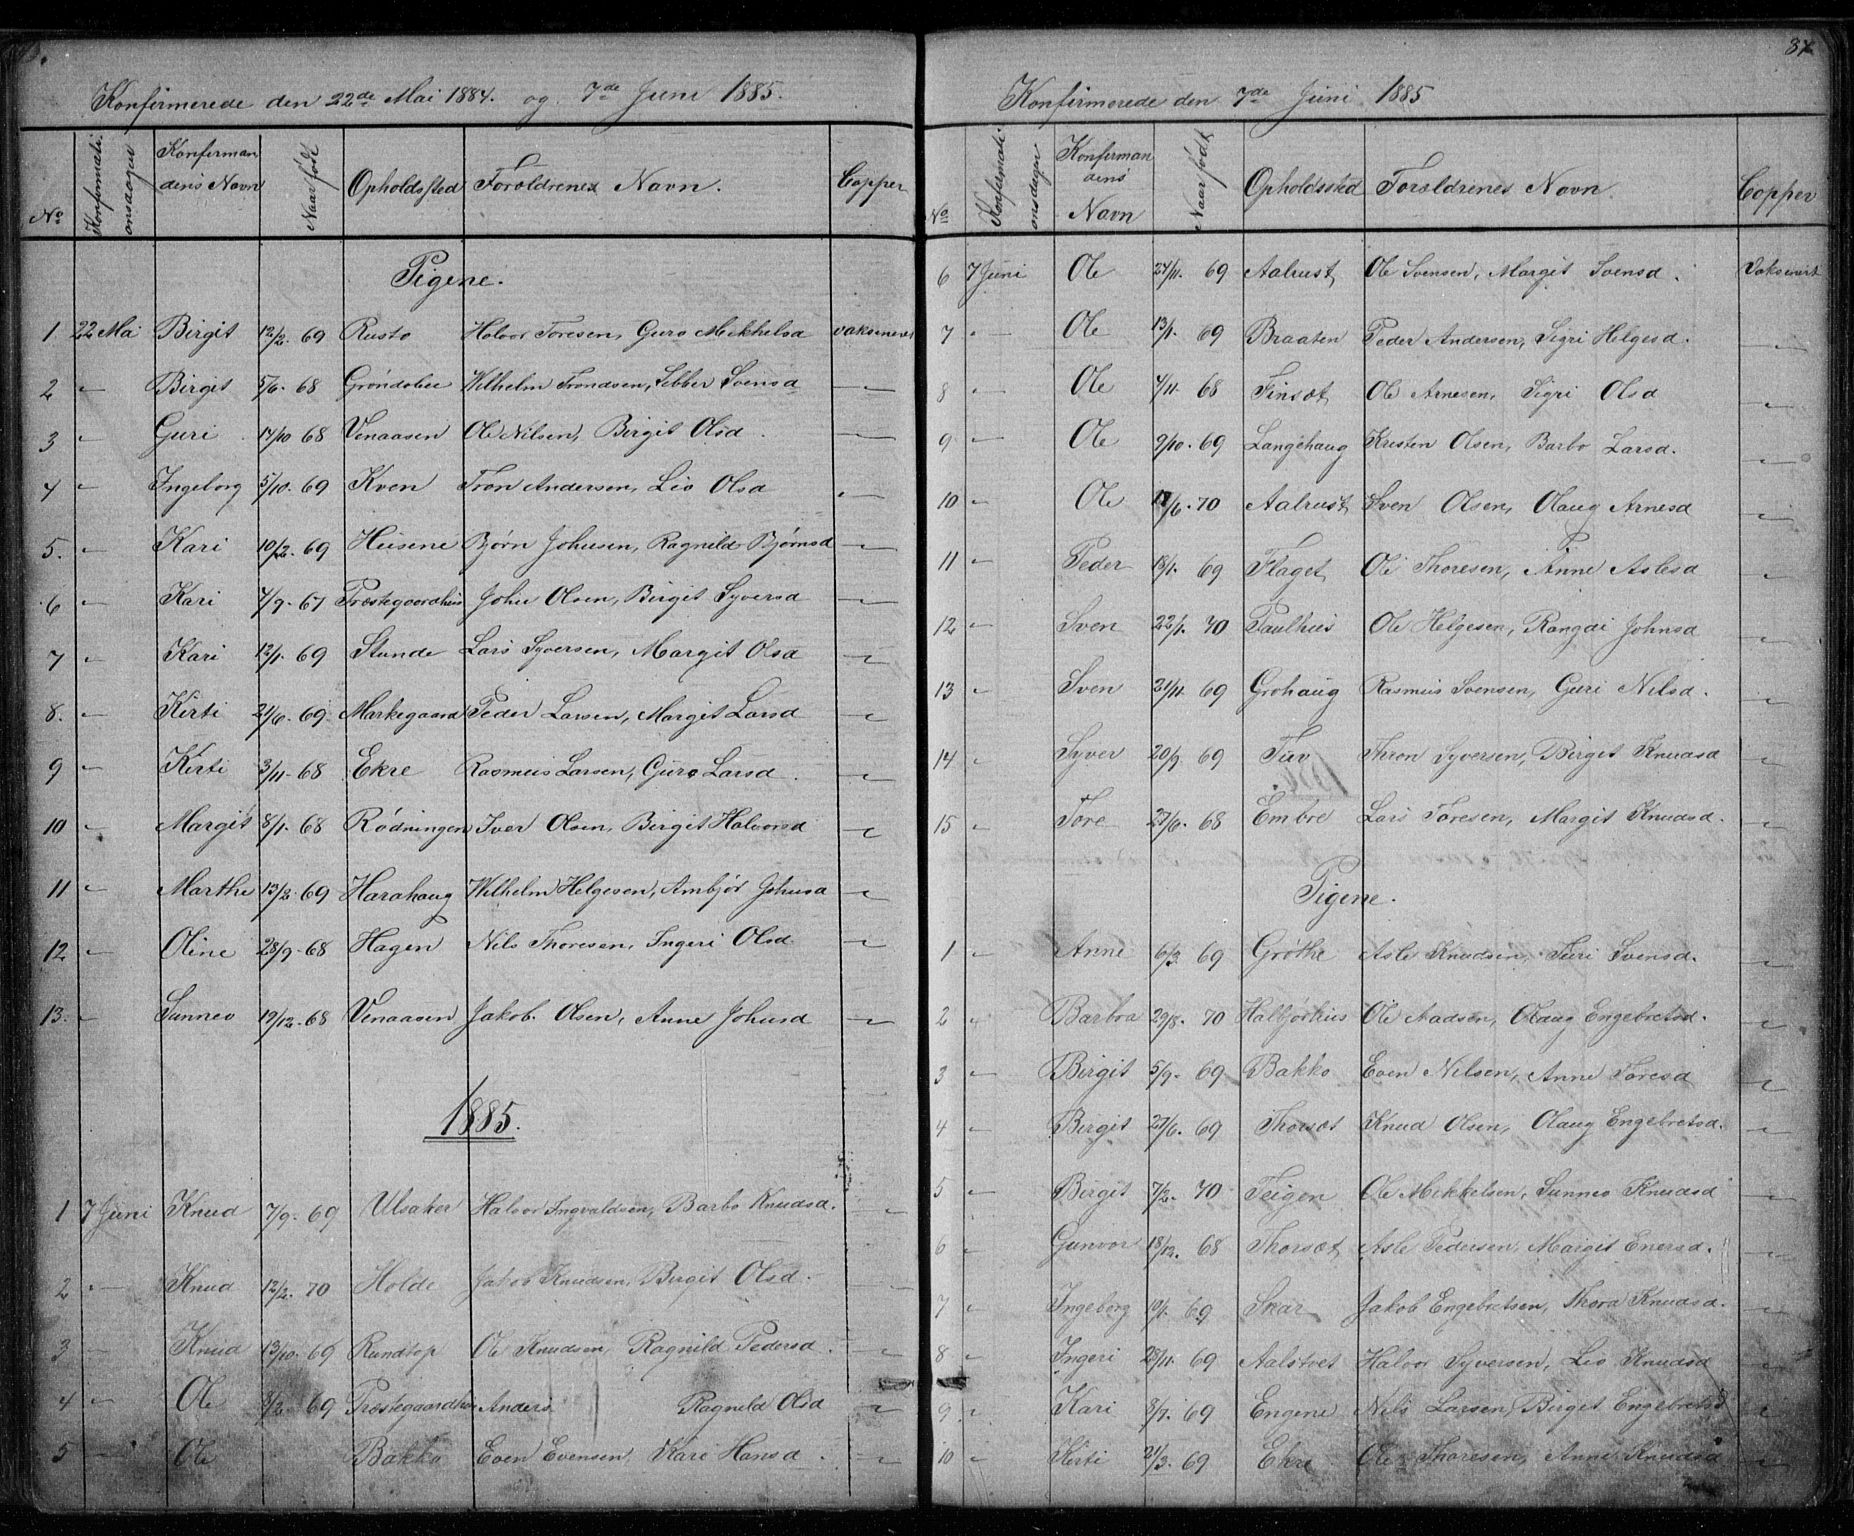 Konfirmerede den 22de Mai 1884. og 7de Juni 1885.
No Konfirmationsdagen Konfirmandens Navn Naar født Opholdssted Forældrenes Navn. Copper
Pigene.
1 22 Mai Birgit 12/2 69 Rusto Halvor Toresen, Guro Mekkelsd vaksineret
2 " Birgit 5/6. 68 Grøndalen Vilhelm Trondsen, Sebber Svensd "
3 " Guri 14/10 68 Venaasen Ole Nilsen, Birgit Olsd. "
4 " Ingeborg 5/10. 69 Kven Tron Andersen, Liv Olsd "
5. " Kari 10/2. 69 Heisene Bjørn Johnsen, Ragnild Bjørnsd "
6 " Kari 7/9. 67 Præstegaardhus John Olsen, Birgit Syversd "
7 " Kari 12/1. 69 Stunde Lars Syversen, Margit Olsd "
8. " Kirti 21/6. 69 Markegaard Peder Larsen, Margit Larsd "
9 " Kirti 3/11 68 Ekre Rasmus Larsen, Guro Larsd. "
10 " Margit 8/1. 68 Rødningen Iver Olsen, Birgit Halvorsd "
11 " Marthe 13/2. 69 Harahaug Vilhelm Helgesen, Ambjør Johnsd "
12 " Oline 28/9. 68 Hagen Nils Thoresen, Ingeri Olsd "
13. " Sunnev 19/12. 68 Venaasen Jakob. Olsen, Anne Johnsd "
1885.
1 7 Juni Knud 7/9. 69 Ulsaker Halvor Ingvaldsen, Barbo Knudsd. "
2 " Knud 12/2. 70 Holde Jakob Knudsen, Birgit Olsd. "
3 " Knud 13/10. 69 Rundtop Ole Knudsen, Ragnild Pedersd. "
4 " Ole 69 Præstegaardhus Anders Ragnild Olsd "
5 " Ole Bakko Even Evensen, Kari Hansd. "
37.
Konfirmerede den 7de Juni 1885
No Konfirmationsdagen Konfirmandens Navn Naar født Opholdssted Forældrenes Navn. Copper
6 7 Juni Ole 24/11. 69 Aalrust Ole Svensen, Margit Svensd. Vaksinert
7 " Ole 13/1. 69 Braaten Peder Andersen, Sigri Helgesd. "
8 " Ole 4/11. 68 Finsæt Ole Arnesen, Sigri Olsd "
9 " Ole 9/10. 69 Langehaug Kristen Olsen, Barbo Larsd. "
10 " Ole 17/6. 70 Aalrust Sven Olsen, Olaug Arnesd "
11 " Peder 18/1. 69 Flaget Ole Thoresen, Anne Aslesd "
12 " Sven 22/1. 70 Paulhus Ole Helgesen, Rangdi Johnsd "
13 " Sven 21/11. 69 Grohaug Rasmus Svensen, Guri Nilsd. "
14 " Syver 20/9. 69 Tuv Thron Syversen, Birget Knudsd "
15 " Tore 27/6. 68 Embre Lars Toresen, Margit Knudsd. "
Pigene.
1 " Anne 6/3. 69 Grøthe Asle Knudsen, Turi Svensd. "
2 " Barbra 29/8. 70 Halbjørhus Ole Aadsen, Olaug Engebretsd. "
3 " Birgit 5/9. 69 Bakko Even Nilsen, Anne Toresd "
4 " Birgit 27/6. 69 Thorsæt Knud Olsen, Olaug Engebretsd. "
5 " Birgit 7/2. 70 Teigen Ole Mekkelsen, Sunnev Knudsd "
6 " Gunvor 18/12. 68 Thorsæt Asle Pedersen, Margit Enersd. "
7 " Ingeborg 10/1. 69 Skar Jakob Engebretsen, Thora Knudsd. "
8 " Ingeri 28/11. 69 Aalstvet Halvor Syversen, Liv Knudsd "
9 " Kari 8/7. 69 Engene Nils Larsen, Birget Engebretsd "
10 " Kirti 21/3. 69 Ekre Ole Thoresen, Anne Knudsd "